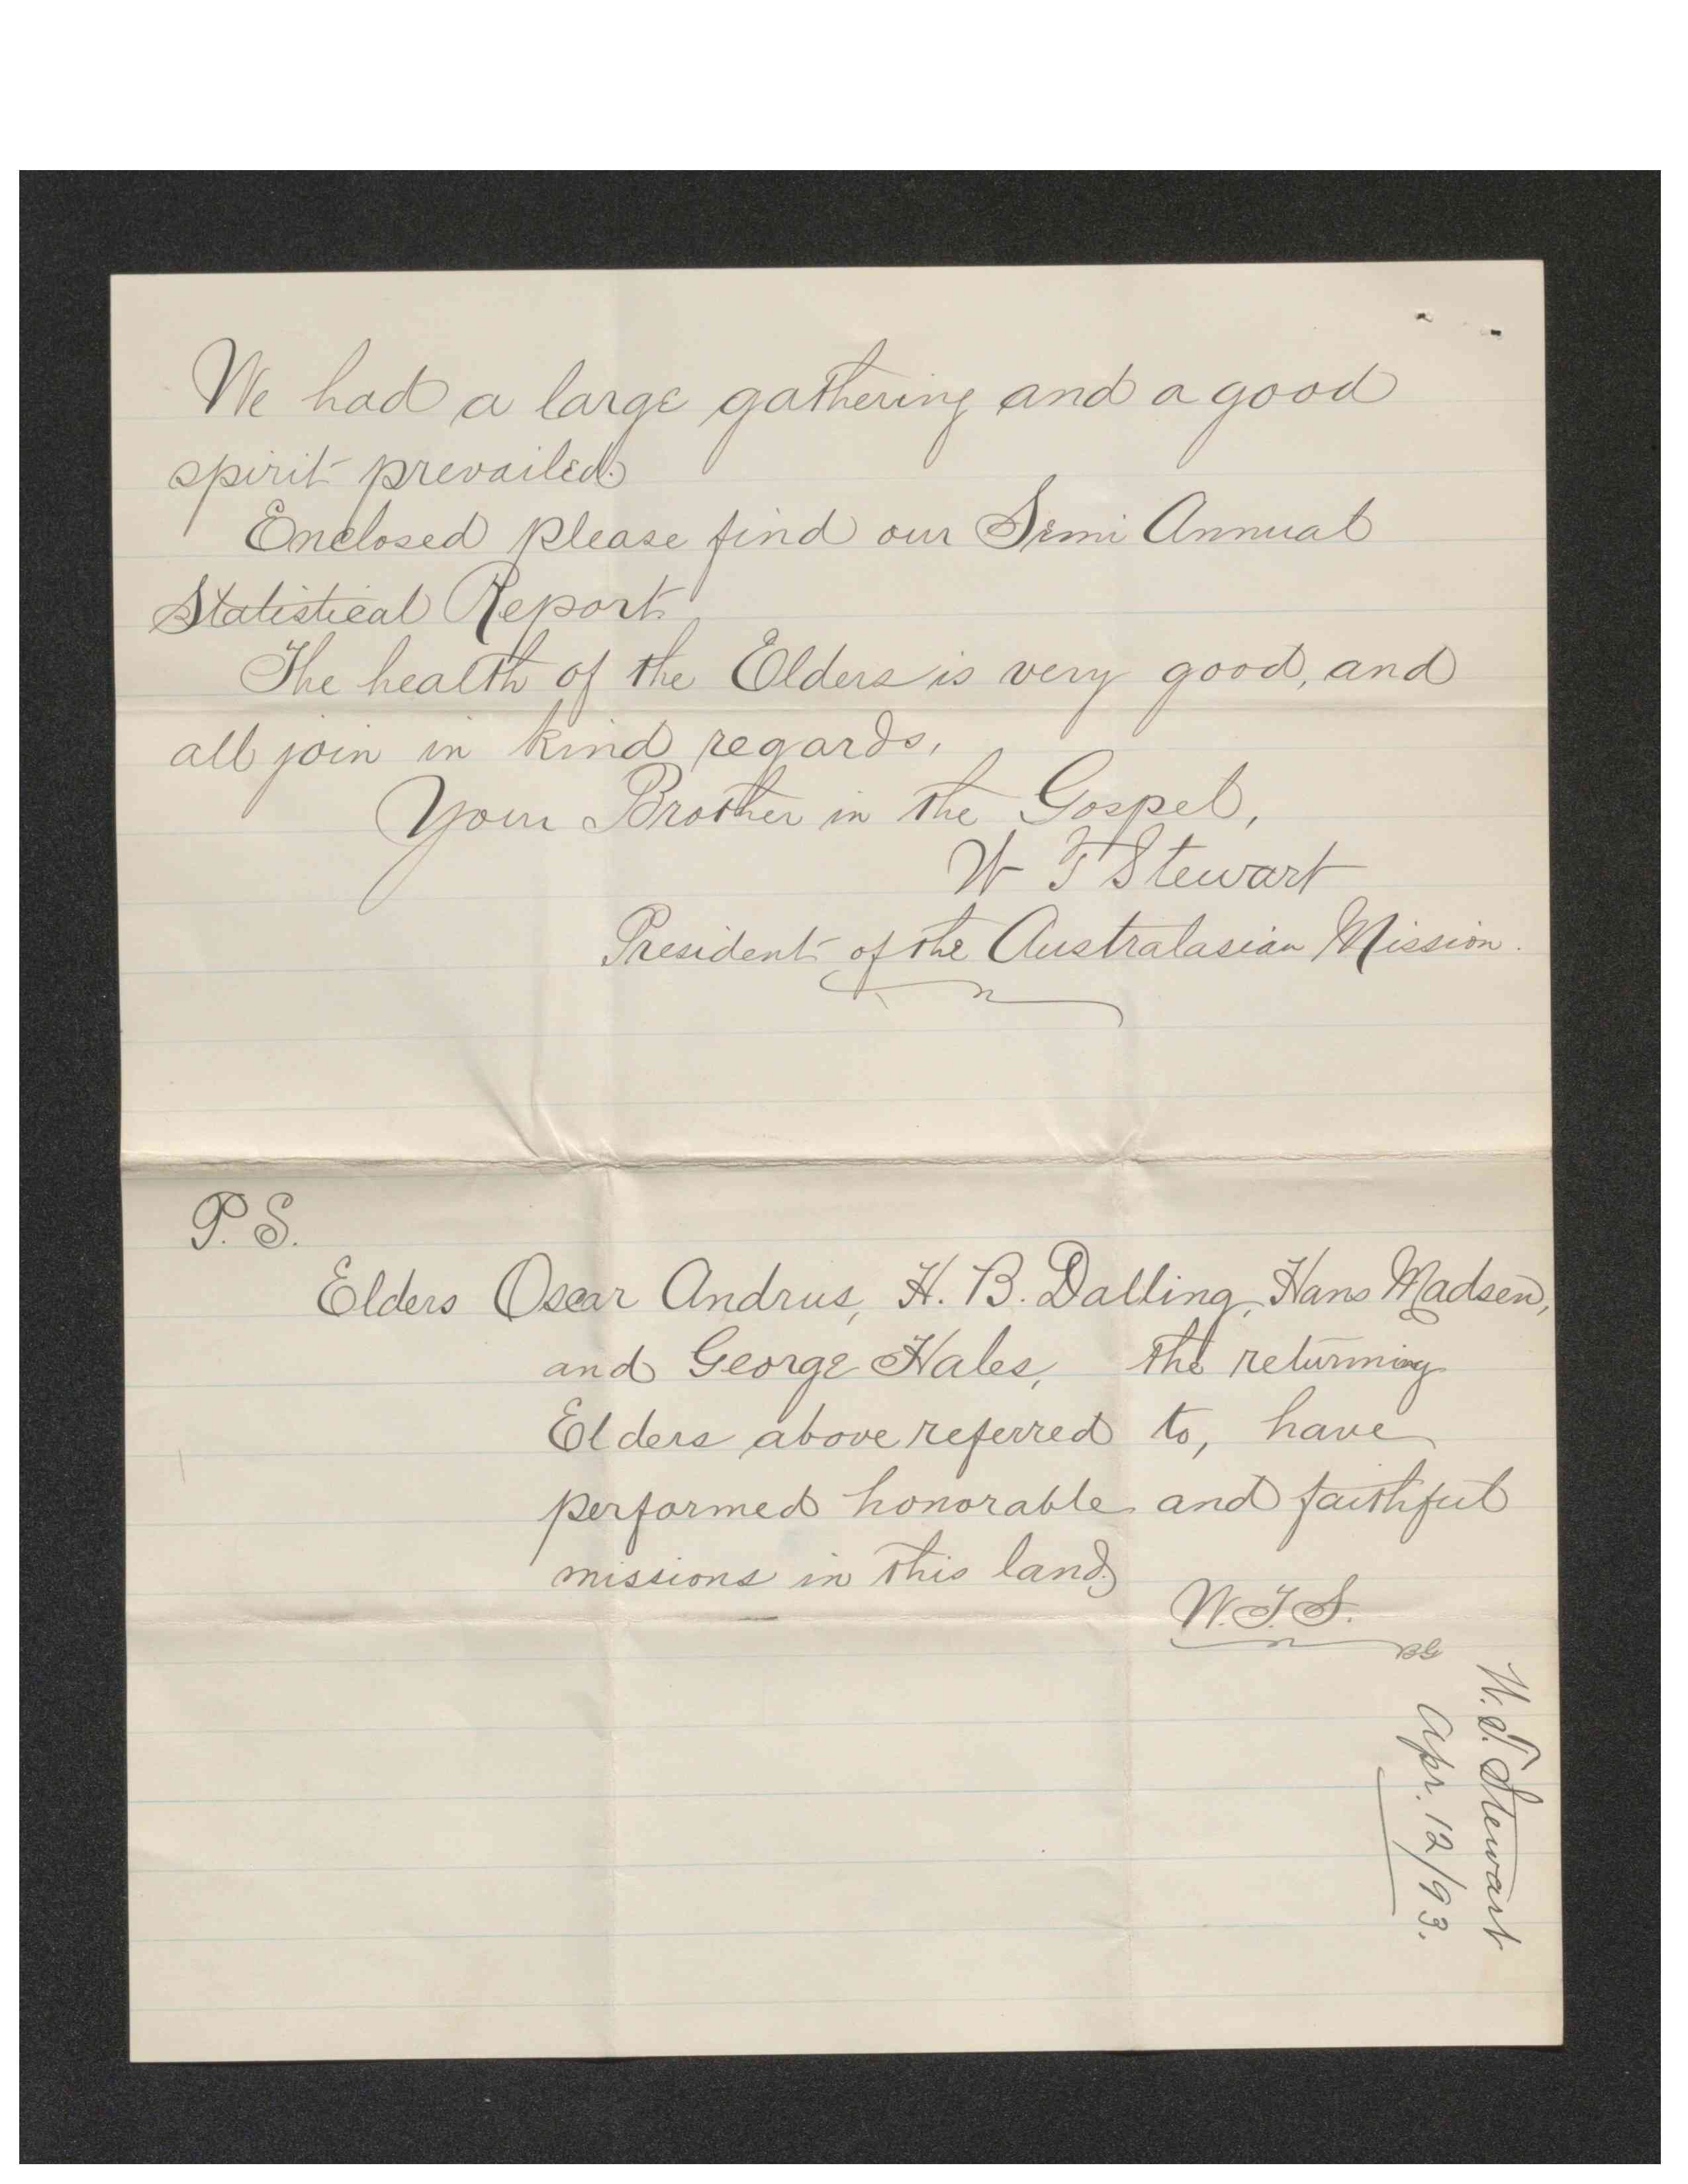 We had a large gathering and a good
spirit prevailed.
Enclosed please find our Semi Annual
Statistical Report.
The health of the Elders is very good, and
all join in kind regards,
Your Brother in the Gospel,
W T Stewart
President of the Australasian Mission.
P.S.
Elders Oscar Andrus, H. B. Dalling, Hans Madsen,
and George Hales, the returning
Elders above referred to, have
performed honorable and faithful
missions in this land.
W.T.S.
BG
W. T. Stewart
Apr. 12/93.